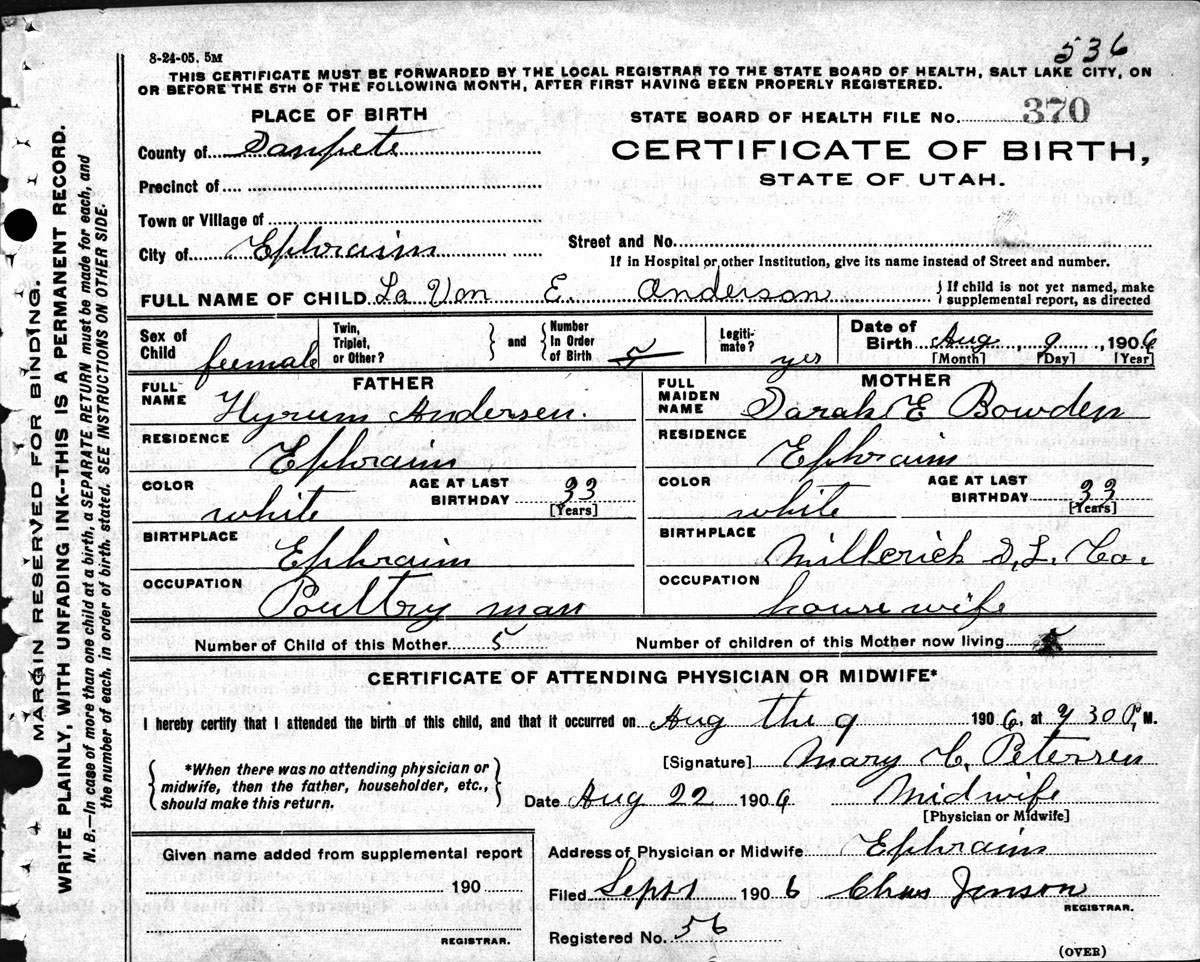 536
8-24-05. 5M
THIS CERTIFICATE MUST BE FORWARDED BY THE LOCAL REGISTRAR TO THE STATE BOARD OF HEALTH, SALT LAKE CITY, ON
OR BEFORE THE 5TH OF THE FOLLOWING MONTH, AFTER FIRST HAVING BEEN PROPERLY REGISTERED.
PLACE OF BIRTH
STATE BOARD OF HEALTH FILE No. 370
County of Sanpete
CERTIFICATE OF BIRTH,
STATE OF UTAH.
Precinct of
Town or Village of
City of Ephraim
Street and No.
If in Hospital or other Institution, give its name instead of Street and number.
FULL NAME OF CHILD La Von E. Anderson { If child is not yet named, make supplemental report, as directed
Sex of Child feemale
Twin, Triplet, or Other? } and { Number In Order of Birth 5
Legitimate? yes
Date of Birth Aug 9, 1906
[Month] [Day] [Year]
FATHER
FULL NAME Hyrum Andersen.
RESIDENCE Ephraim
COLOR white AGE AT LAST BIRTHDAY 33 [Years]
BIRTHPLACE Ephraim
OCCUPATION Poultry man
MOTHER
FULL MAIDEN NAME Sarah E Bowden
RESIDENCE Ephraim
COLOR white AGE AT LAST BIRTHDAY 33 [Years]
BIRTHPLACE S. L. Co.
OCCUPATION house wife
Number of Child of this Mother 5 Number of children of this Mother now living 5
CERTIFICATE OF ATTENDING PHYSICIAN OR MIDWIFE*
I hereby certify that I attended the birth of this child, and that it occurred on Aug the 9 1906, at 30 P, M.
*When there was no attending physician or
midwife, then the father, householder, etc.,
should make this return.
[Signature] Mary C. Petersen
Date Aug 22 190 Midwife
[Physician or Midwife]
Given name added from supplemental report
190
REGISTRAR.
Address of Physician or Midwife Ephraim
Filed Sept 1 1906 Chas Jenson
REGISTRAR.
Registered No. 56
(OVER)
MARGIN RESERVED FOR BINDING.
WRITE PLAINLY, WITH UNFADING INK--THIS IS A PERMANENT RECORD.
N. B.—In case of more than one child at a birth, a SEPARATE RETURN must be made for each, and
the number of each, in order of birth, stated. SEE INSTRUCTIONS ON OTHER SIDE.